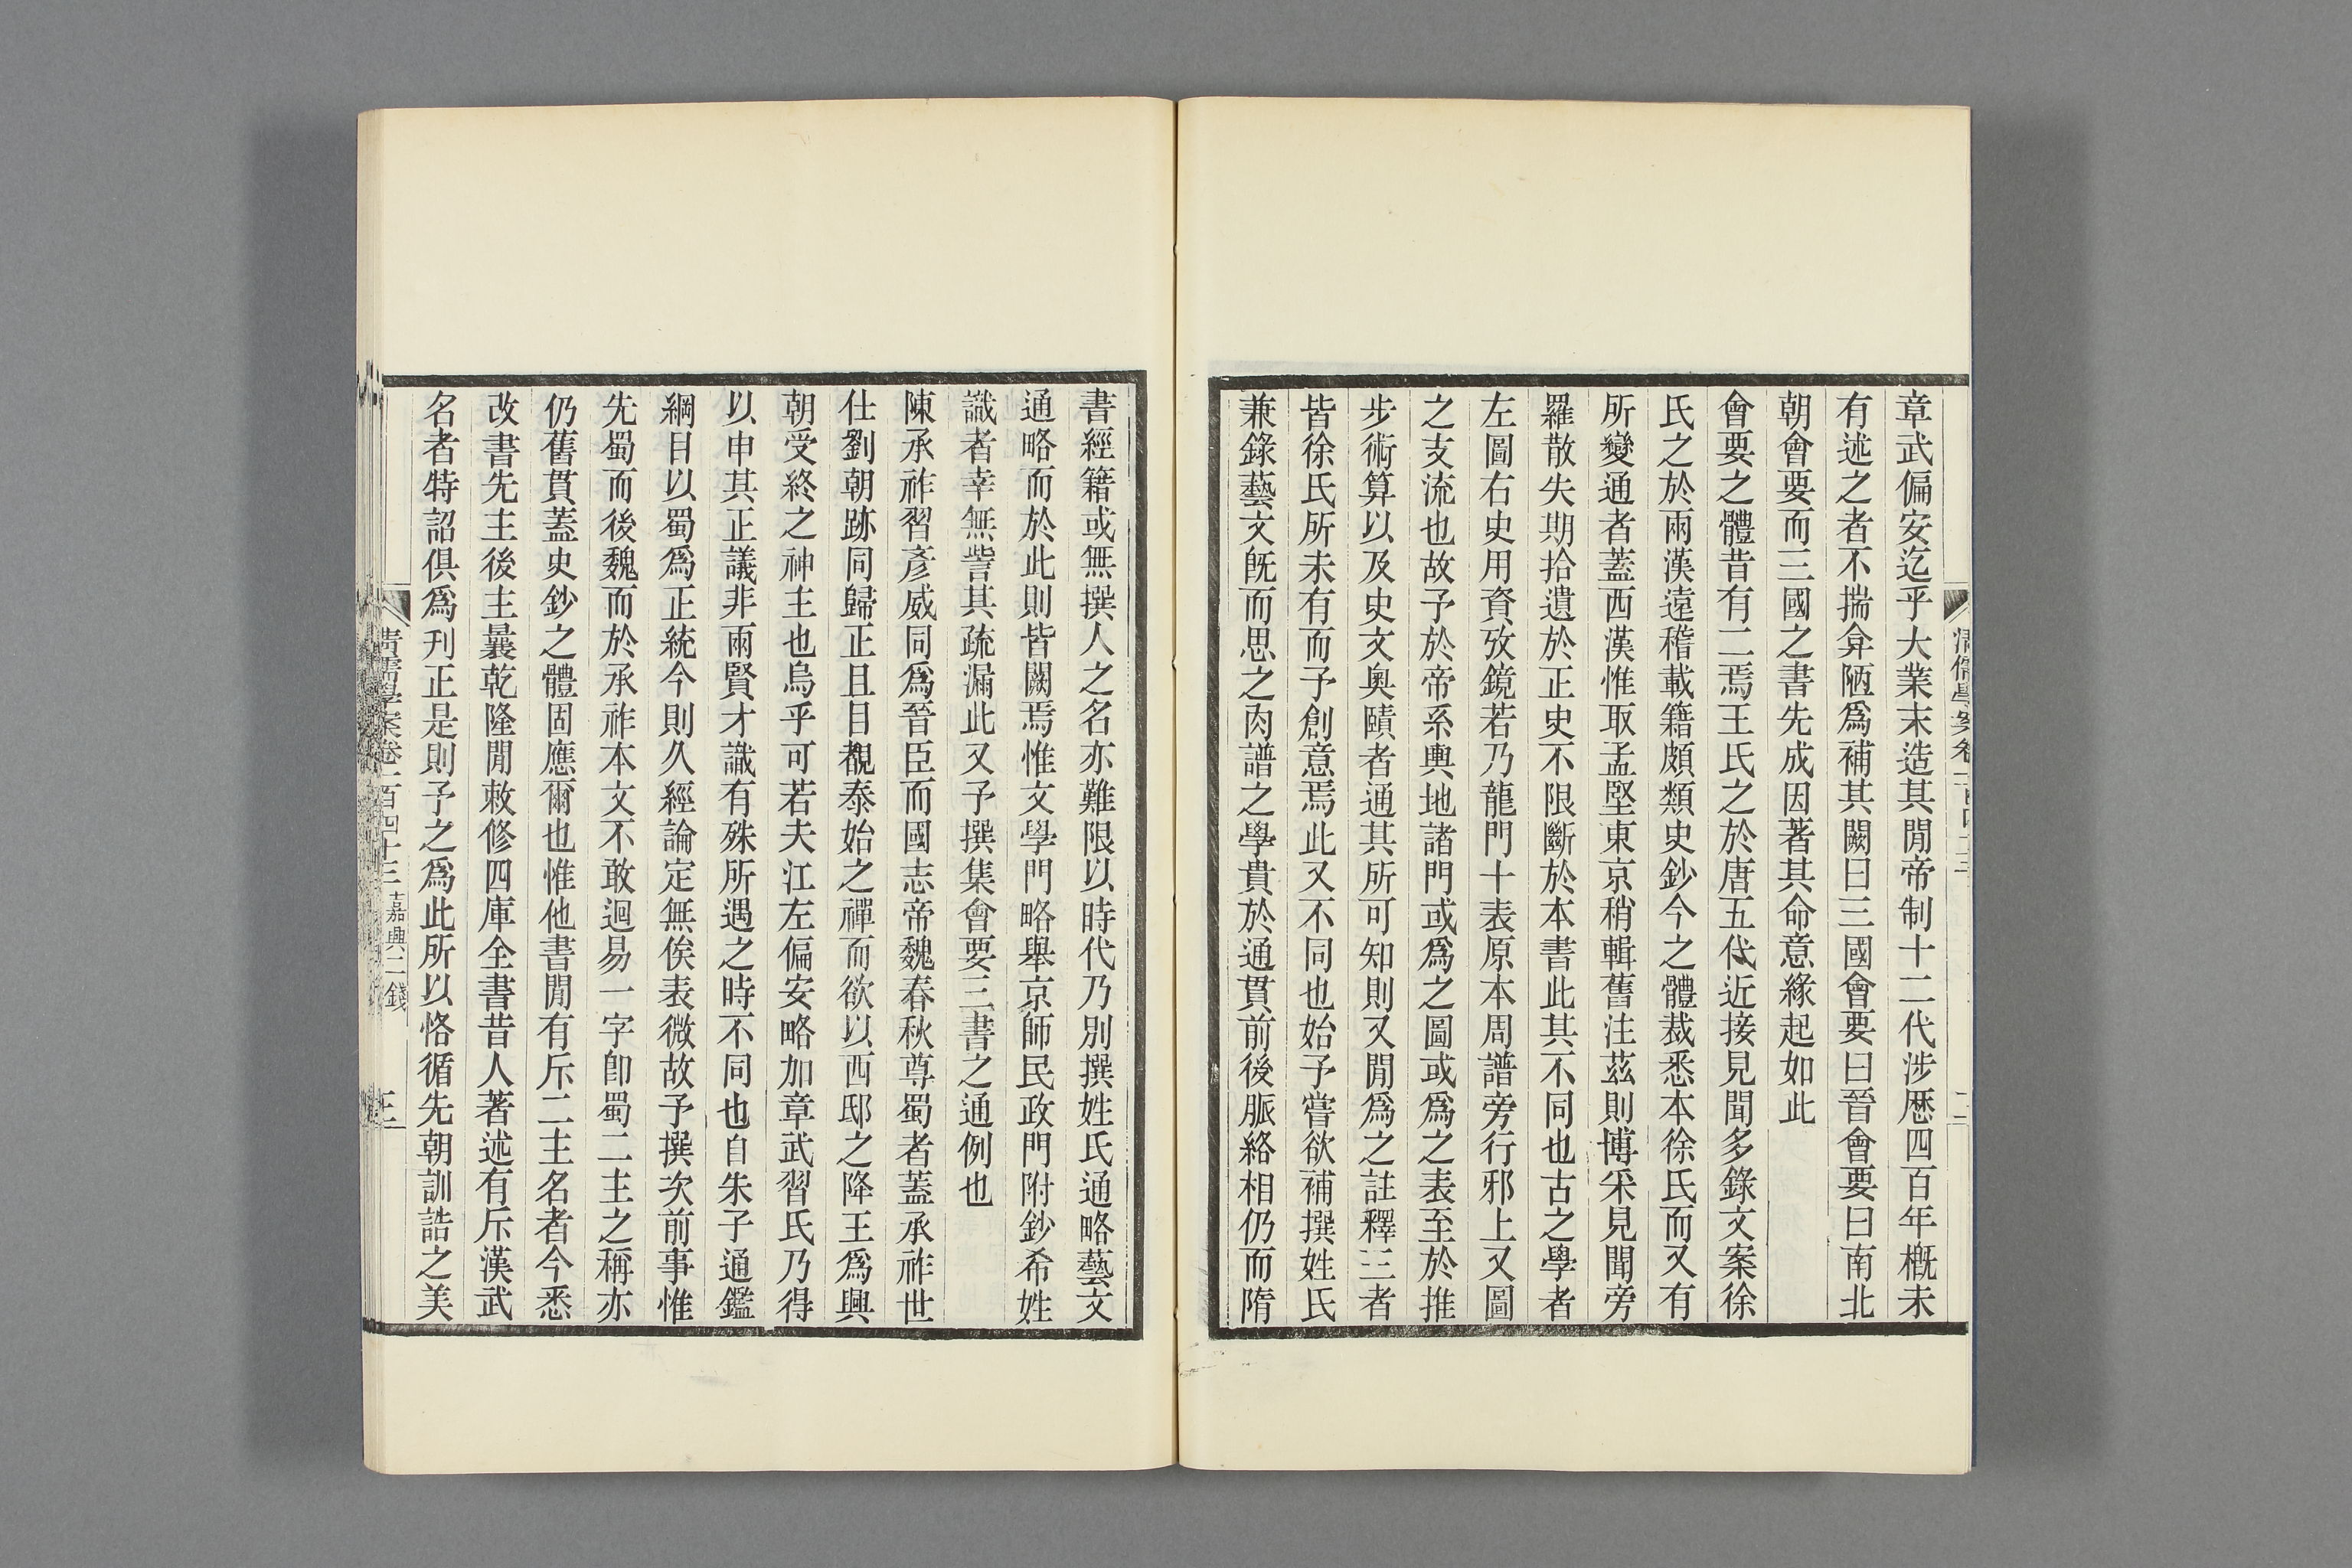 章武偏安迄乎大業末造其閒帝制十二代涉厯四百年槪未
有述之者不揣弇陋爲補其闕曰三國會要曰晉會要曰南北
朝會要而三國之書先成因著其命意緣起如此
會要之體昔有二焉王氏之於唐五代近接見聞多錄文案徐
氏之於兩漢遠稽載籍頗類史鈔今之體裁悉本徐氏而又有
所變通者蓋西漢惟取孟堅東京稍輯舊注茲則博采見聞旁
羅散失期拾遺於正史不限斷於本書此其不同也古之學者
左圖右史用資攷鏡若乃龍門十表原本周譜旁行邪上又圖
之支流也故予於帝系輿地諸門或爲之圖或爲之表至於推
步術算以及史文奧賾者通其所可知則又閒爲之註釋三者
皆徐氏所未有而予創意焉此又不同也始予嘗欲補撰姓氏
兼錄藝文旣而思之肉譜之學貴於通貫前後脈絡相仍而隋
書經籍或無撰人之名亦難限以時代乃別撰姓氏通略藝文
通略而於此則皆闕焉惟文學門略舉京師民政門附鈔希姓
識者幸無訾其疏漏此又予撰集會要三書之通例也
陳承祚習彥威同爲晉臣而國志帝魏春秋尊蜀者蓋承祚世
仕劉朝跡同歸正且目覩泰始之禪而欲以西邸之降王爲興
朝受終之神主也烏乎可若夫江左偏安略加章武習氏乃得
以申其正議非兩賢才識有殊所遇之時不同也自朱子通鑑
綱目以蜀爲正統今則久經論定無俟表微故予撰次前事惟
先蜀而後魏而於承祚本文不敢迴易一字卽蜀二主之稱亦
仍舊貫蓋史鈔之體固應爾也惟他書閒有斥二主名者今悉
改書先主後主曩乾隆閒敕修四庫全書昔人著述有斥漢武
名者特詔俱爲刊正是則予之爲此所以恪循先朝訓誥之美
清儒學案卷二百四十三 嘉興二錢 三